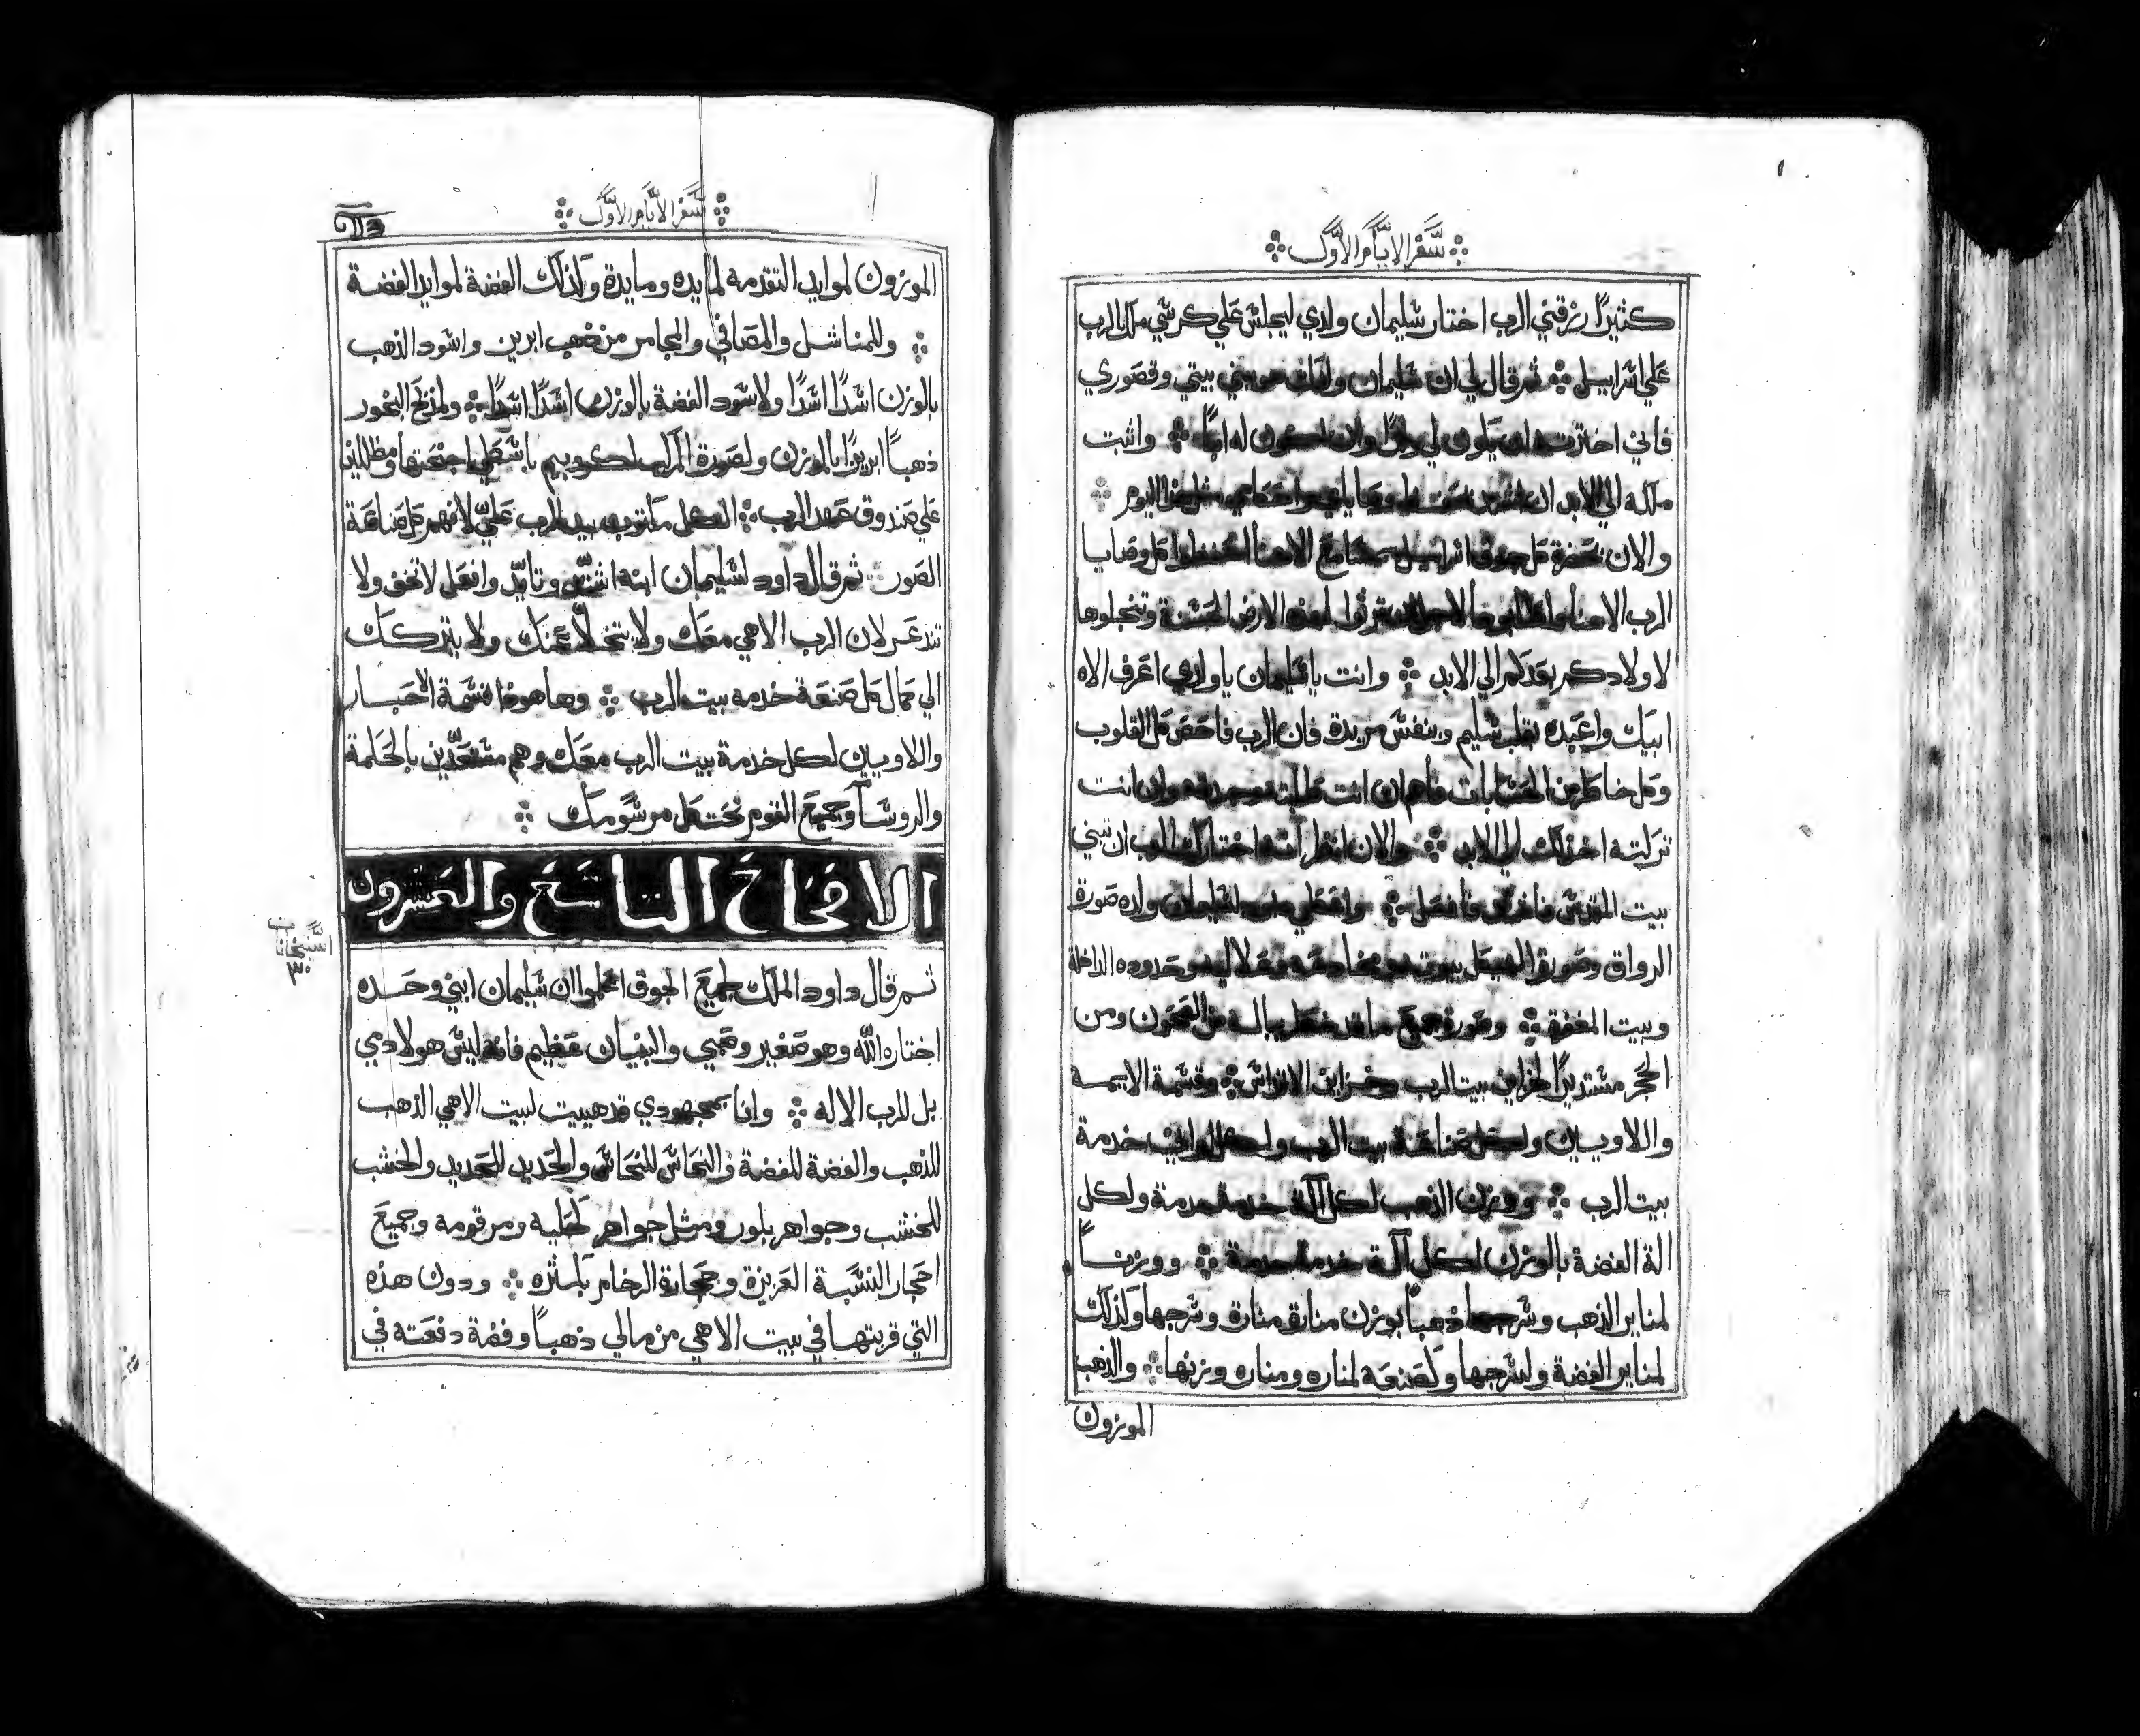 سفر الايام الاول
كثيرًا رزقني الرب اختار سليمان ولدي ليجلس علي كرسي ملك الرب
علي اسراييل ثم قال لي ان سليمان ولدك هو يبني بيتي وقصوري
فاني اخترته ان يكون لي ولدًا وان اكون له ابًا واثبت
ملكه الي الابد ان وصاياي واحكامي مثل هذا اليوم
والان بحضرة كل جوق اسراييل مجامع الاهنا احفظوا كل وصايا
الرب الاهنا واطلبوها لاجل ان ترثوا لهذه الارض الحسنة وتنحلوها
لاولادكم بعدكم الي الابد وانت يا سليمان يا ولدي اعرف الاه
ابيك واعبده بقلب سليم وبنفس مريدة فان الرب فاحص كل القلوب
وكل خاطر من الحسابات فاهم ان انت طلبته توجده وان انت
تركته اخذلك الي الابد والان انظر انه اختارك الرب ان تبني
بيت المقدس فافعل واعطي داود لسليمان ولده صورة
الرواق وصورة الهيكل بيوته وحدوده الداخلة
وبيت المغفرة وصورة جميع ما قد خطر بباله من الصحون ومن
الحجر مستديرًا لخزاين بيت الرب وخزاين الاقداس وقسمة الايمه
واللاويين ولكل صناعة بيت الرب ولكل اواني خدمة
بيت الرب ووزن الذهب لكل آلة خدمة خدمة ولكل
الة الفضة بالوزن لكل آلة خدمة خدمة ووزنًا
لمناير الذهب وسرجها ذهبًا بوزن منارة منارة وسرجها وكذلك
لمناير الفضة ولسرجها وكصنعه لمناره ومناره وزنها والذهب
الموزون
سفر الايام الاول
الموزون لموايد التقدمه لمايده ومايدة وكذلك الفضة لموايد الفضة
وللمناشل والمصافي والمجامر من ذهب ابريز واسود الذهب
بالوزن اسدًا اسدًا ولاسود الفضة بالوزن اسدًا اسدًا ولمذبح البخور
ذهبًا ابريزًا بالوزن ولصورة المركب لكروبيم باسطي اجنحتها ومظللين
علي صندوق عهد الرب الكل مكتوب بيد الرب عليّ لافهم كل صناعة
الصور ثم قال داود لسليمان ابنه اشتدّ وتأيّد وافعل لا تخف ولا
تذعر لان الرب الاهي معك ولا يتخلا عنك ولا يتركك
الي كمال كل صنعة خدمه بيت الرب وها هوذا قسمة الاحبار
واللاويين لكل خدمة بيت الرب معك وهم مستعدّين بالحكمة
والروسا وجميع القوم تحت كل مرسومك
الاصحاح التاسع والعشرون
٣٠
ثم قال داود الملك لجميع الجوق اعلموا ان سليمان ابني وحده
اختاره الله وهو صغير وصبي والبنيان عظيم فانه ليس هو لادمي
بل للرب الاله وانا بمجهودي قد هييت لبيت الاهي الذهب
للذهب والفضة للفضة والنحاس للنحاس والحديد للحديد والخشب
للخشب وجواهر بلور ومثل جواهر لحليه ومرقومه وجميع
احجار النسبة العزيزة وحجارة الرخام بكثره ودون هذه
التي قربتها في بيت الاهي من مالي ذهبًا وفضة دفعته في